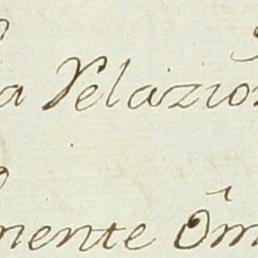 a Relazion
mente Ôm